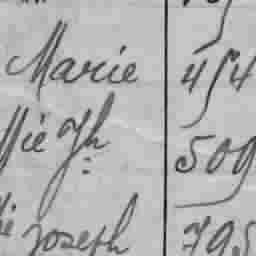 Marie 454
Jh 509
Joseph 795